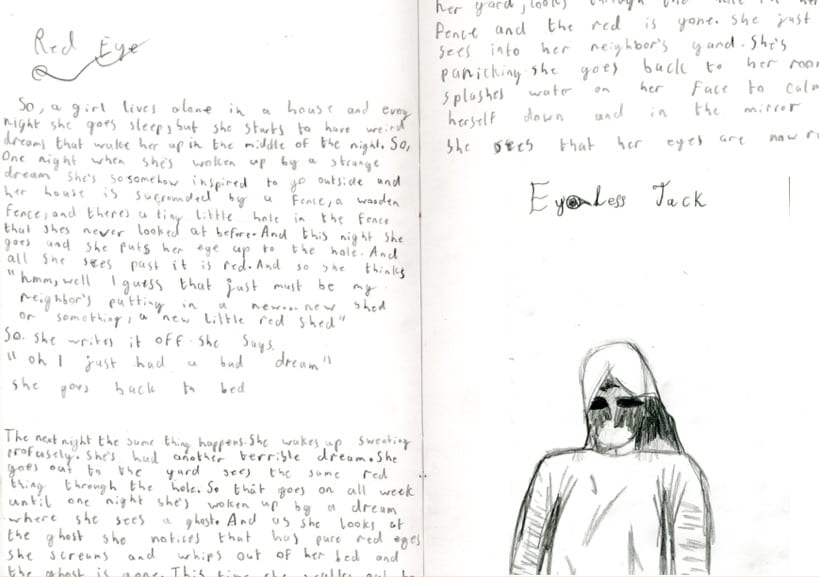 Red Eye
So, a girl lives alone in a house and every
night she goes sleep, but she starts to have weird
dreams that wake her up in the middle of the night. So,
One night when she's woken up by a strange
dream she's so somehow inspired to go outside and
her house is surrounded by a fence, a wooden
fence, and there's a tiny little hole in the fence
that shes never looked at before. And this night she
goes and she puts her eye up to the hole. And
all she sees past it is red. And so she thinks
"hmm, well I guess that just must be my
neighbor's putting in a new... new shed
or something, a new little red shed"
So. She writes it off. She says.
"oh I just had a bad dream"
she goes back to bed
The next night the same thing happens. She wakes up sweating
profusely. She's had another terrible dream. She
goes out to the yard sees the same red
thing through the hole. So that goes on all week
until one night she's woken up by a dream
where she sees a ghost. And as she looks at
the ghost she notices that has pure red eyes
she screams and whips out of her bed and
the ghost is gone. This time she
her yard, looks through
Fence and the red is gone. She just
sees into her neighbor's yard. She's
panicking. She goes back to her room
splashes water on her face to calm
herself down and in the mirror
she sees that her eyes are now
Eyeless Jack